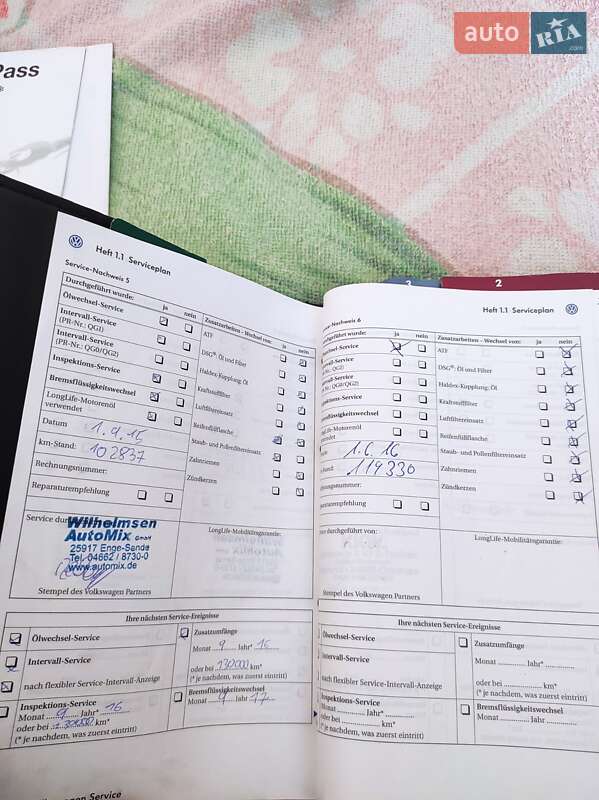 auto RIA.com
Pass
3
2
Heft 1.1 Serviceplan
Service-Nachweis 5
Durchgeführt wurde: ja nein
Ölwechsel-Service
Intervall-Service
(PR-Nr.: QG1)
Intervall-Service
(PR-Nr.: QG0/QG2)
Inspektions-Service
Bremsflüssigkeitswechsel
LongLife-Motorenöl
verwendet
Datum 1.9.15
km-Stand: 102837
Rechnungsnummer:
Reparaturempfehlung
Zusatzarbeiten - Wechsel von: ja nein
ATF
DSG®: Öl und Filter
Haldex-Kupplung: Öl
Kraftstofffilter
Luftfiltereinsatz
Reifenfüllflasche
Staub- und Pollenfiltereinsatz
Zahnriemen
Zündkerzen
Wilhelmsen
AutoMix GmbH
25917 Enge-Sande
Tel. 04662 / 8730-0
www.automix.de
Stempel des Volkswagen Partners
LongLife-Mobilitätsgarantie:
Ihre nächsten Service-Ereignisse
Ölwechsel-Service
Intervall-Service
nach flexibler Service-Intervall-Anzeige
Inspektions-Service
Monat 9 Jahr* 16
oder bei km*
(* je nachdem, was zuerst eintritt)
Zusatzumfänge
Monat 9 Jahr* 16
oder bei 132000 km*
(* je nachdem, was zuerst eintritt)
Bremsflüssigkeitswechsel
Monat 9 Jahr 17
Heft 1.1 Serviceplan
-Nachweis 6
wurde: ja nein
-Service
-Service
-Service
QG0/QG2)
-Service
LongLife-Motorenöl
1.6.16
119330
Zusatzarbeiten - Wechsel von: ja nein
ATF
DSG®: Öl und Filter
Haldex-Kupplung: Öl
Kraftstofffilter
Luftfiltereinsatz
Reifenfüllflasche
Staub- und Pollenfiltereinsatz
Zahnriemen
Zündkerzen
durchgeführt von:
LongLife-Mobilitätsgarantie:
Stempel des Volkswagen Partners
Ihre nächsten Service-Ereignisse
Ölwechsel-Service
Intervall-Service
nach flexibler Service-Intervall-Anzeige
Inspektions-Service
Monat Jahr*
oder bei km*
(* je nachdem, was zuerst eintritt)
Zusatzumfänge
Monat Jahr*
oder bei km*
(* je nachdem, was zuerst eintritt)
Bremsflüssigkeitswechsel
Monat Jahr
Service